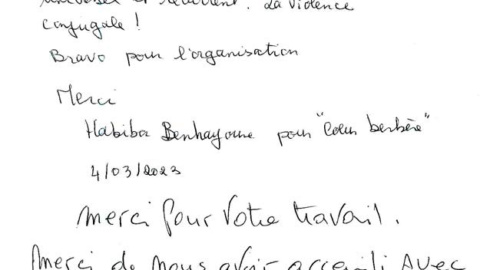 et récurrent. La violence
conjugale !
Bravo pour l'organisation
Merci
Habiba Benhayoune pour "Coeur berbère"
4/03/2023
merci pour votre travail.
Merci de nous avoir accueilli avec